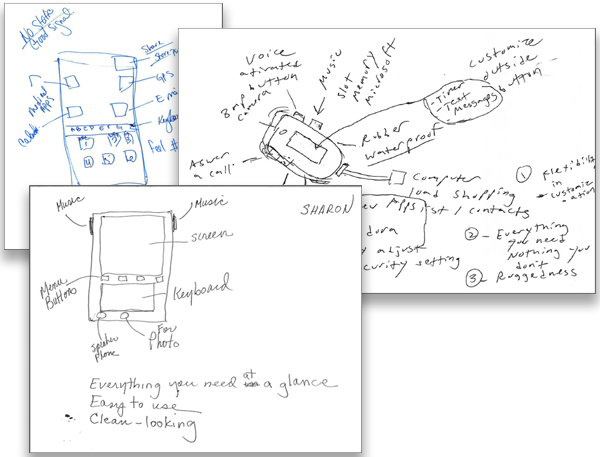 No Static
Good Signal
Share
Storage
GPS
Medical
Apps
E mai
Calend
A B C D E F G
Keyboa
Feel #
Voice
activated
button
3mp
camera
Music
Slot memory
Microsoft
Customize
outside
button
- Timer
- Text
Messages
Rubber
waterproof
Answer
a call
Computer
load shopping
list / contacts
Apps
dura
y adjust
curity setting
① Flexibility
in
customiz
ation
② - Everything
you need
Nothing you
don't
③ - Ruggedness
SHARON
Music
Music
screen
Menu
Buttons
Keyboard
Speaker
Phone
For
Photo
Everything you need at a glance
Easy to use
Clean-looking